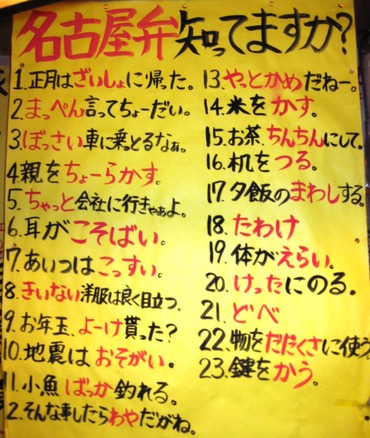 名古屋弁知ってますか?
1.正月はざいしょに帰った。
2.まっぺん言ってちょーだい。
3.ぼっさい車に乗っとるなぁ。
4.親をちょーらかす。
5.ちゃっと会社に行きゃぁよ。
6.耳がこそばい。
7.あいつはこっすい。
8.きいない洋服は良く目立つ。
9.お年玉、よーけ貰った?
10.地震はおそがい。
1.小魚ばっか釣れる。
2.そんな事したらわやだがね。
13.やっとかめだねー。
14.米をかす。
15.お茶、ちんちんにして。
16.机をつる。
17.夕飯のまわしする。
18.たわけ
19.体がえらい。
20.けったにのる。
21.どべ
22.物をだだくさに使う
23.鍵をかう。